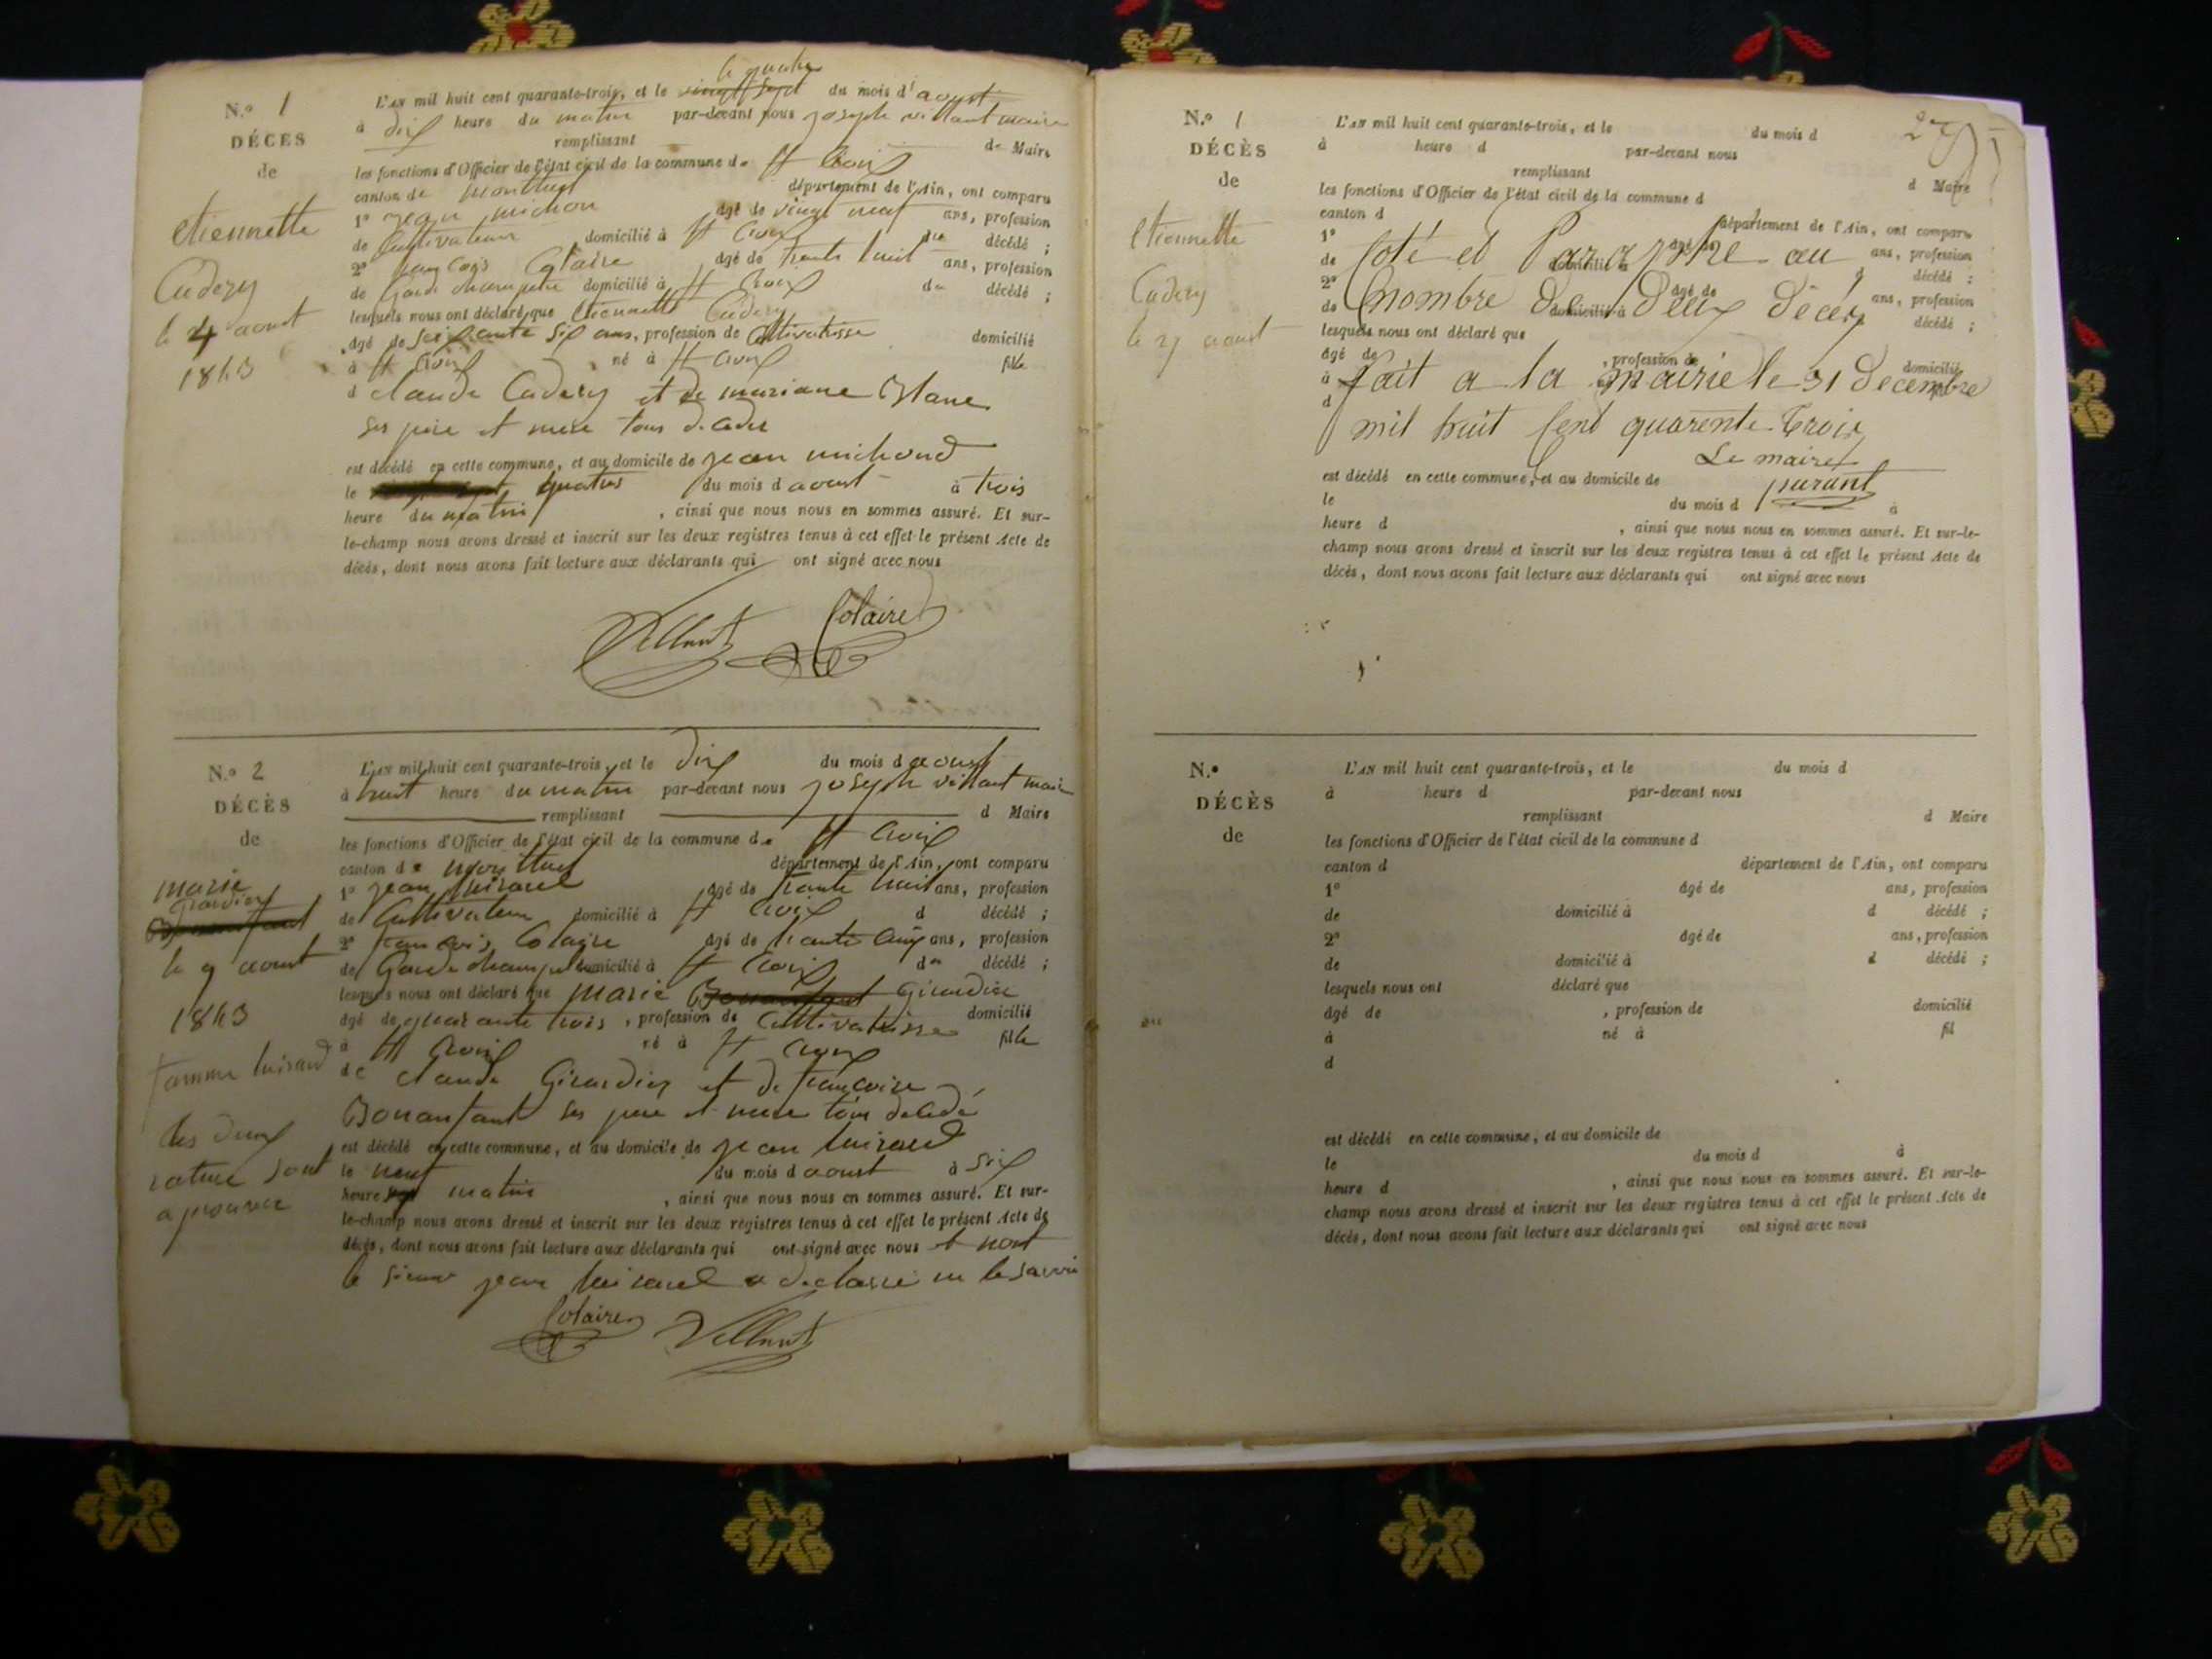 N.º 1
DÉCES
de
etiennette
Cadery
le 4 aoust
1843
le quatre
L'AN mil huit cent quarante-trois, et le vingt sept du mois d'aoust
à dix heure du matin par-devant nous joseph villant maire
remplissant de Maire
les fonctions d'Officier de l'état civil de la commune de St Croix
canton de montluel département de l'Ain, ont comparu
1º jean michon âgé de vingt neuf ans, profession
de Cultivateur domicilié à St Croix du décédé ;
2º françois Colaire âgé de trente huit ans, profession
de Garde champetre domicilié à St Croix du décédé ;
lesquels nous ont déclaré que etiennette Cadery
âgé de soixante six ans, profession de Cultivatisse domicilié
à St Croix né à St Croix fille
d claude Cadery et de mariane Blanc
ses père et mere tous decedes
est décédé en cette commune, et au domicile de jean michond
le quatres du mois d aoust à trois
heure du matin , ainsi que nous nous en sommes assuré. Et sur-
le-champ nous avons dressé et inscrit sur les deux registres tenus à cet effet le présent Acte de
décès, dont nous avons fait lecture aux déclarants qui ont signé avec nous
Villant Colaire
N.º 2
DÉCÈS
de
marie
girardier
Bonnanfant
le 9 aoust
1843
famme luiraud
les deux
rature sont
aprouver
L'AN mil huit cent quarante-trois, et le dix du mois d aoust
à huit heure du matin par-devant nous joseph villant maire
remplissant d Maire
les fonctions d'Officier de l'état civil de la commune de St Croix
canton de montluel département de l'Ain, ont comparu
1º jean luiraud âgé de trante huit ans, profession
de Cultivateur domicilié à St Croix d décédé ;
2º francois Colaire âgé de trante cinq ans, profession
de Garde champetre domicilié à St Croix du décédé ;
lesquels nous ont déclaré que marie Bonnanfant Girardier
âgé de quarante trois , profession de Cultivatrisse domicilié
à St Croix né à St Croix fille
de claude Girardier et de francoise
Bonanfant ses pere et mere tous decedé
est décédé en cette commune, et au domicile de jean luiraud
le neuf du mois d aoust à six
heure matin , ainsi que nous nous en sommes assuré. Et sur-
le-champ nous avons dressé et inscrit sur les deux registres tenus à cet effet le présent Acte de
décès, dont nous avons fait lecture aux déclarants qui ont signé avec nous et nont
le sieur jean luiraud a declaré ne le savoir
Colaire Villant
N.º 1
DÉCÈS
de
etiennette
Cadery
le 27 aoust
L'AN mil huit cent quarante-trois, et le du mois d
à heure d par-devant nous
remplissant d Maire
les fonctions d'Officier de l'état civil de la commune d
canton d département de l'Ain, ont comparu
1º âgé de ans, profession
de domicilié à d décédé ;
Coté et Paraphe au
2º âgé de ans, profession
de domicilié à décédé ;
nombre de deux décés
lesquels nous ont déclaré que
âgé de , profession de domicilié
à
fait a la mairie le 31 decembre
d
mil huit cent quarente trois
Le maire
est décédé en cette commune, et au domicile de
purant
le du mois d à
heure d , ainsi que nous nous en sommes assuré. Et sur-le-
champ nous avons dressé et inscrit sur les deux registres tenus à cet effet le présent Acte de
décès, dont nous avons fait lecture aux déclarants qui ont signé avec nous
N.º
DÉCÈS
de
L'AN mil huit cent quarante-trois, et le du mois d
à heure d par-devant nous
remplissant d Maire
les fonctions d'Officier de l'état civil de la commune d
canton d département de l'Ain, ont comparu
1º âgé de ans, profession
de domicilié à d décédé ;
2º âgé de ans, profession
de domicilié à d décédé ;
lesquels nous ont déclaré que
âgé de , profession de domicilié
à né à fil
d
est décédé en cette commune, et au domicile de
le du mois d à
heure d , ainsi que nous nous en sommes assuré. Et sur-le-
champ nous avons dressé et inscrit sur les deux registres tenus à cet effet le présent Acte de
décès, dont nous avons fait lecture aux déclarants qui ont signé avec nous